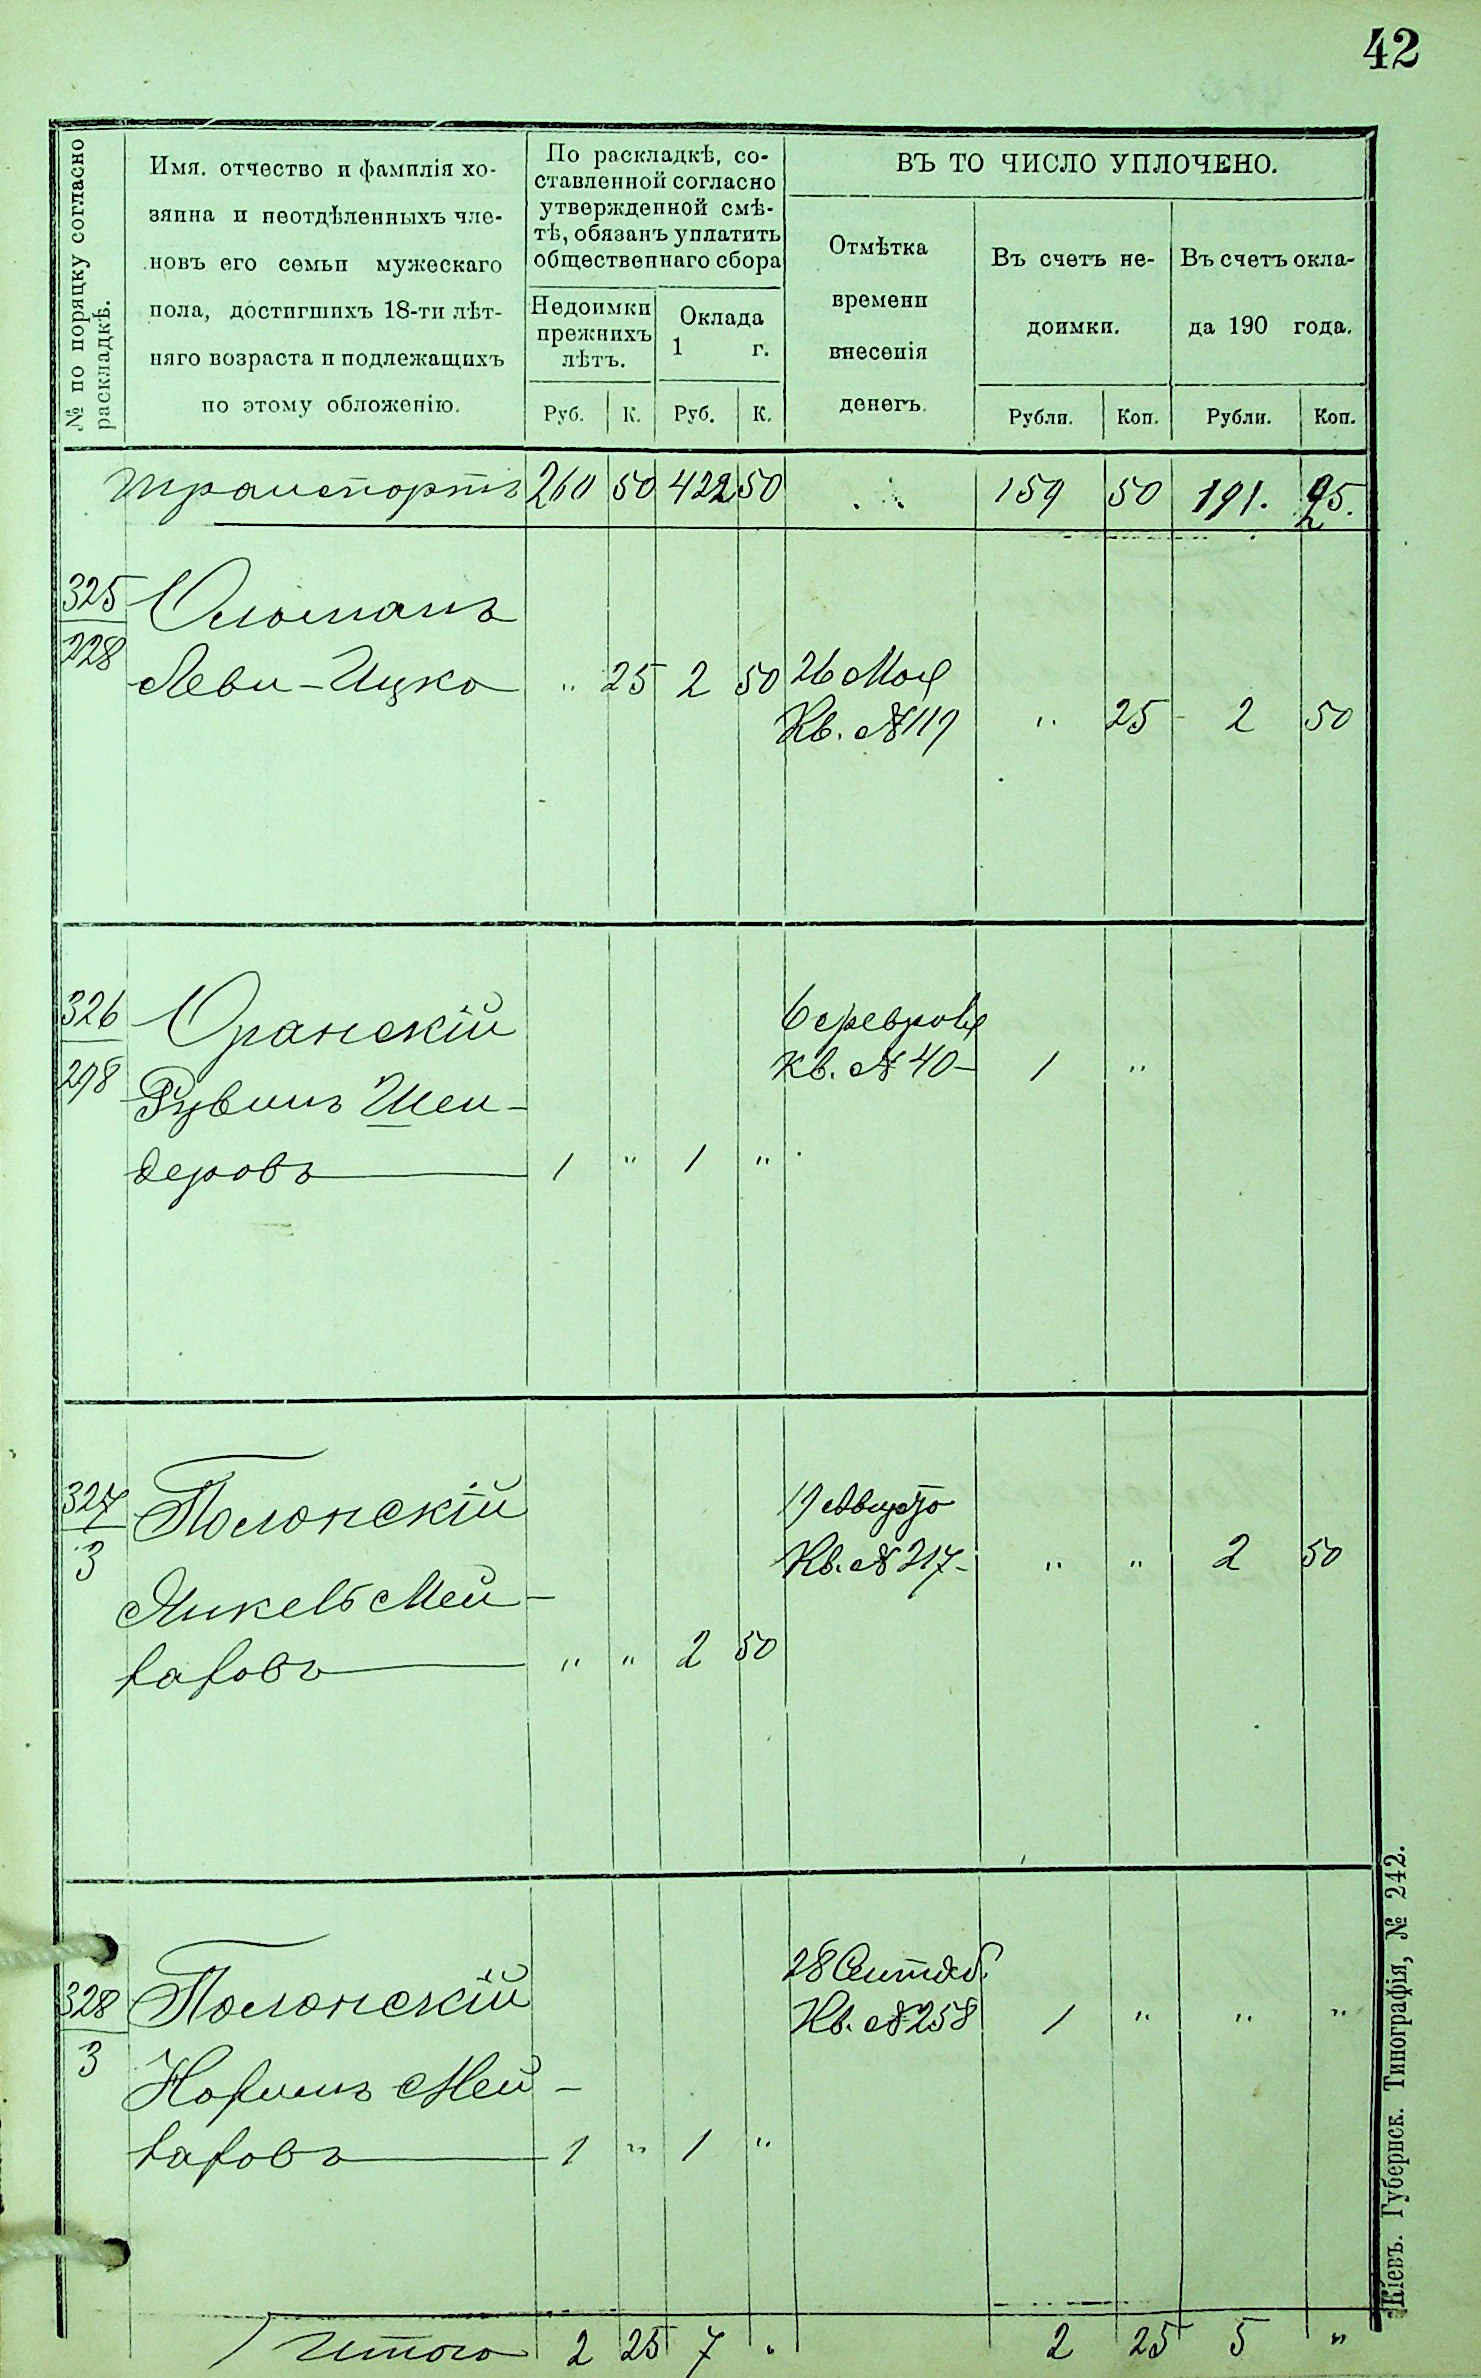 42
№ по порядку согласно
раскладкѣ.
Имя, отчество и фамилія хо-
зяина и неотдѣленныхъ чле-
новъ его семьи мужескаго
пола, достигшихъ 18-ти лѣт-
няго возраста и подлежащихъ
по этому обложенію.
По раскладкѣ, со-
ставленной согласно
утвержденной смѣ-
тѣ, обязанъ уплатить
общественнаго сбора
Недоимки
прежнихъ
лѣтъ.
Оклада
1 г.
Руб. К. Руб. К.
ВЪ ТО ЧИСЛО УПЛОЧЕНО.
Отмѣтка
времени
внесенія
денегъ.
Въ счетъ не-
доимки.
Въ счетъ окла-
да 190 года.
Рубли. Коп. Рубли. Коп.
Транспортъ 260 50 422 50 159 50 191. 25.
325
228
Оломанъ
Леви-Ицко " 25 2 50 26 Мая
Кв. №119 " 25 - 2 50
326
298
Оранскій
Рувинъ Шен-
деровъ 1 " 1 "
6 февраля
Кв. №40- 1 "
327
3
Полонскій
Янкель Мей-
аровъ " " 2 50
19 Августа
Кв. №217- " " 2 50
328
3
Полонскій
Мей-
аровъ 1 " 1 "
28 Сентяб.
Кв. №258 1 " " "
Итого 2 25 7 " 2 25 5 "
Кіевъ. Губернск. Типографія, № 242.